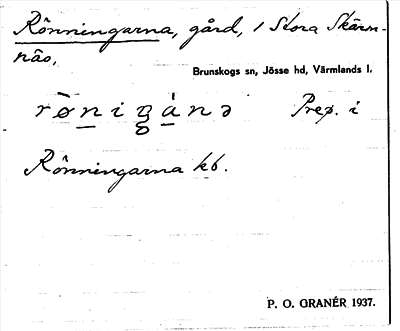 Rönningarna, gård, i Stora Skärm-
näs,
Brunskogs sn, Jösse hd, Värmlands l.
rø̀niŋánə Prep. i
Rönningarna kb.
P. O. GRANÉR 1937.